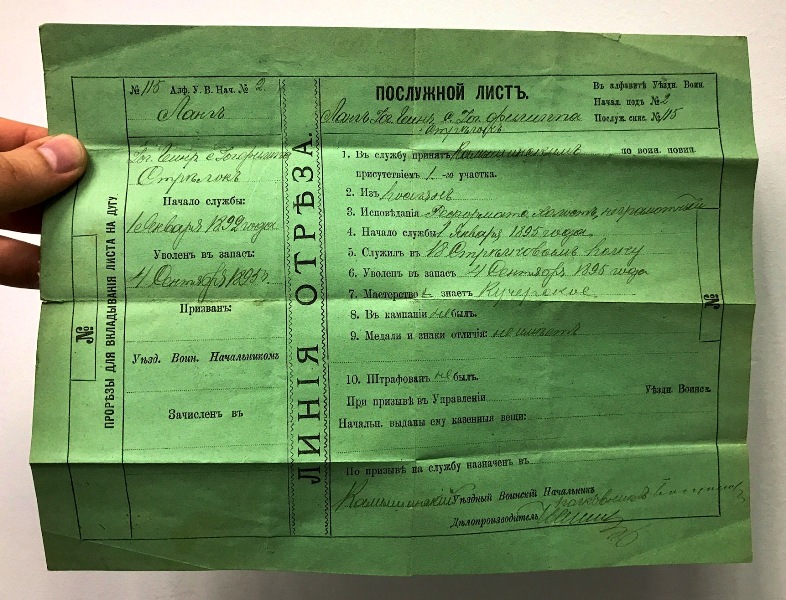 № 115 Алф. У. В. Нач. № 2
Лангъ
Стрѣлокъ
Начало службы:
1 Января 1892 года
Уволенъ въ запасъ:
4 Сентября 1895 г.
Призванъ:
Уѣзд. Воин. Начальникомъ
Зачисленъ въ
№
ПРОРѢЗЫ ДЛЯ ВКЛАДЫВАНІЯ ЛИСТА НА ДУГУ.
ЛИНІЯ ОТРѢЗА.
ПОСЛУЖНОЙ ЛИСТЪ.
Въ алфавитѣ Уѣздн. Воин.
Начал. подъ № 2
Послуж. спис. № 115
Лангъ
Стрѣлокъ
1. Въ службу принятъ Камышинскимъ по воин. повин.
присутствіемъ 1 -го участка.
2. Изъ поселянъ
3. Исповѣданія неграмотный
4. Начало службы 1 Января 1895 года
5. Служилъ въ 18 Стрѣлковомъ полку
6. Уволенъ въ запасъ 4 Сентября 1895 года
7. Мастерство знаетъ Кучерское
8. Въ кампаніи не былъ.
9. Медали и знаки отличія: не имѣетъ
10. Штрафованъ не былъ.
При призывѣ въ Управленіи Уѣздн. Воинск.
Начальн. выданы ему казенныя вещи:
По призывѣ на службу назначенъ въ
Камышинскій Уѣздный Воинскій Начальникъ
Полковникъ
Дѣлопроизводитель
№